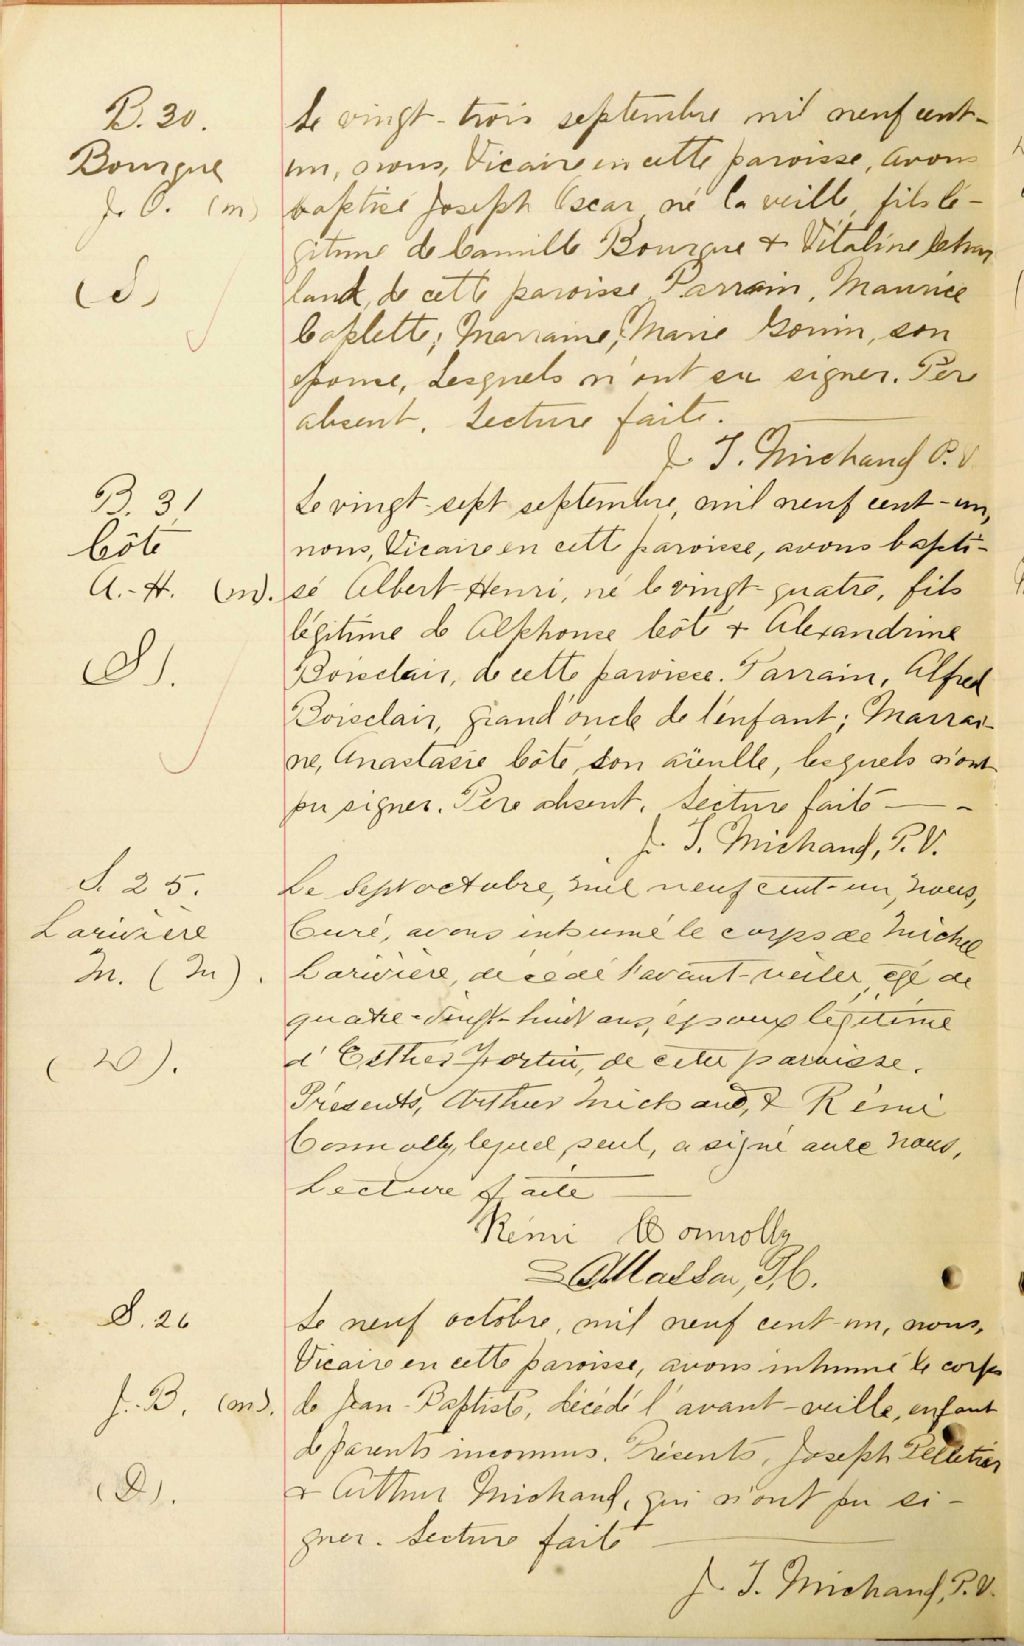 B. 30.
Bourque
J. O. (m)
(S)
Le vingt-trois septembre mil neuf cent-
un, nous, Vicaire en cette paroisse, avons
baptisé Joseph Oscar né la veille, fils lé-
gitime de Camille Bourque + Vitaline
land, de cette paroisse Parrain, Maurice
Caplette; Marraine, Marie Gouin, son
épouse, Lesquels n'ont su signer. Père
absent. Lecture faite.
J. T. Michaud P.V
B. 31
Côté
A.-H. (m).
(S).
Le vingt-sept septembre, mil neuf cent-un,
nous, Vicaire en cette paroisse, avons bapti-
sé Albert-Henri, né le vingt-quatre, fils
légitime de Alphonse Côté + Alexandrine
Boisclair, de cette paroisse. Parrain, Alfred
Boisclair, grand'oncle de l'enfant; Marrai-
ne, Anastasie Côté, son aïeulle, lesquels n'ont
pu signer. Père absent. Lecture faite — -
J. T. Michaud, P.V.
S. 25.
Larivière
M. (M).
(D).
Le sept octobre, mil neuf cent-un, nous,
Curé, avons inhumé le corps de Michel
Larivière, décédé l'avant-veille, agé de
quatre-vingt-huit ans, époux légitime
d'Esther Fortin, de cette paroisse.
Présents, Arthur Michaud, & Rémi
Connolly, lequel, seul, a signé avec nous,
Lecture faite —
Rémi Connolly
Masson, P.C.
S. 26
J.-B. (m).
(D).
Le neuf octobre, mil neuf cent-un, nous,
Vicaire en cette paroisse, avons inhumé le corps
de Jean-Baptiste, décédé l'avant-veille, enfant
de parents inconnus. Présents, Joseph Pelletier
+ Arthur Michaud, qui n'ont pu si-
gner. Lecture faite —
J. T. Michaud, P.V.